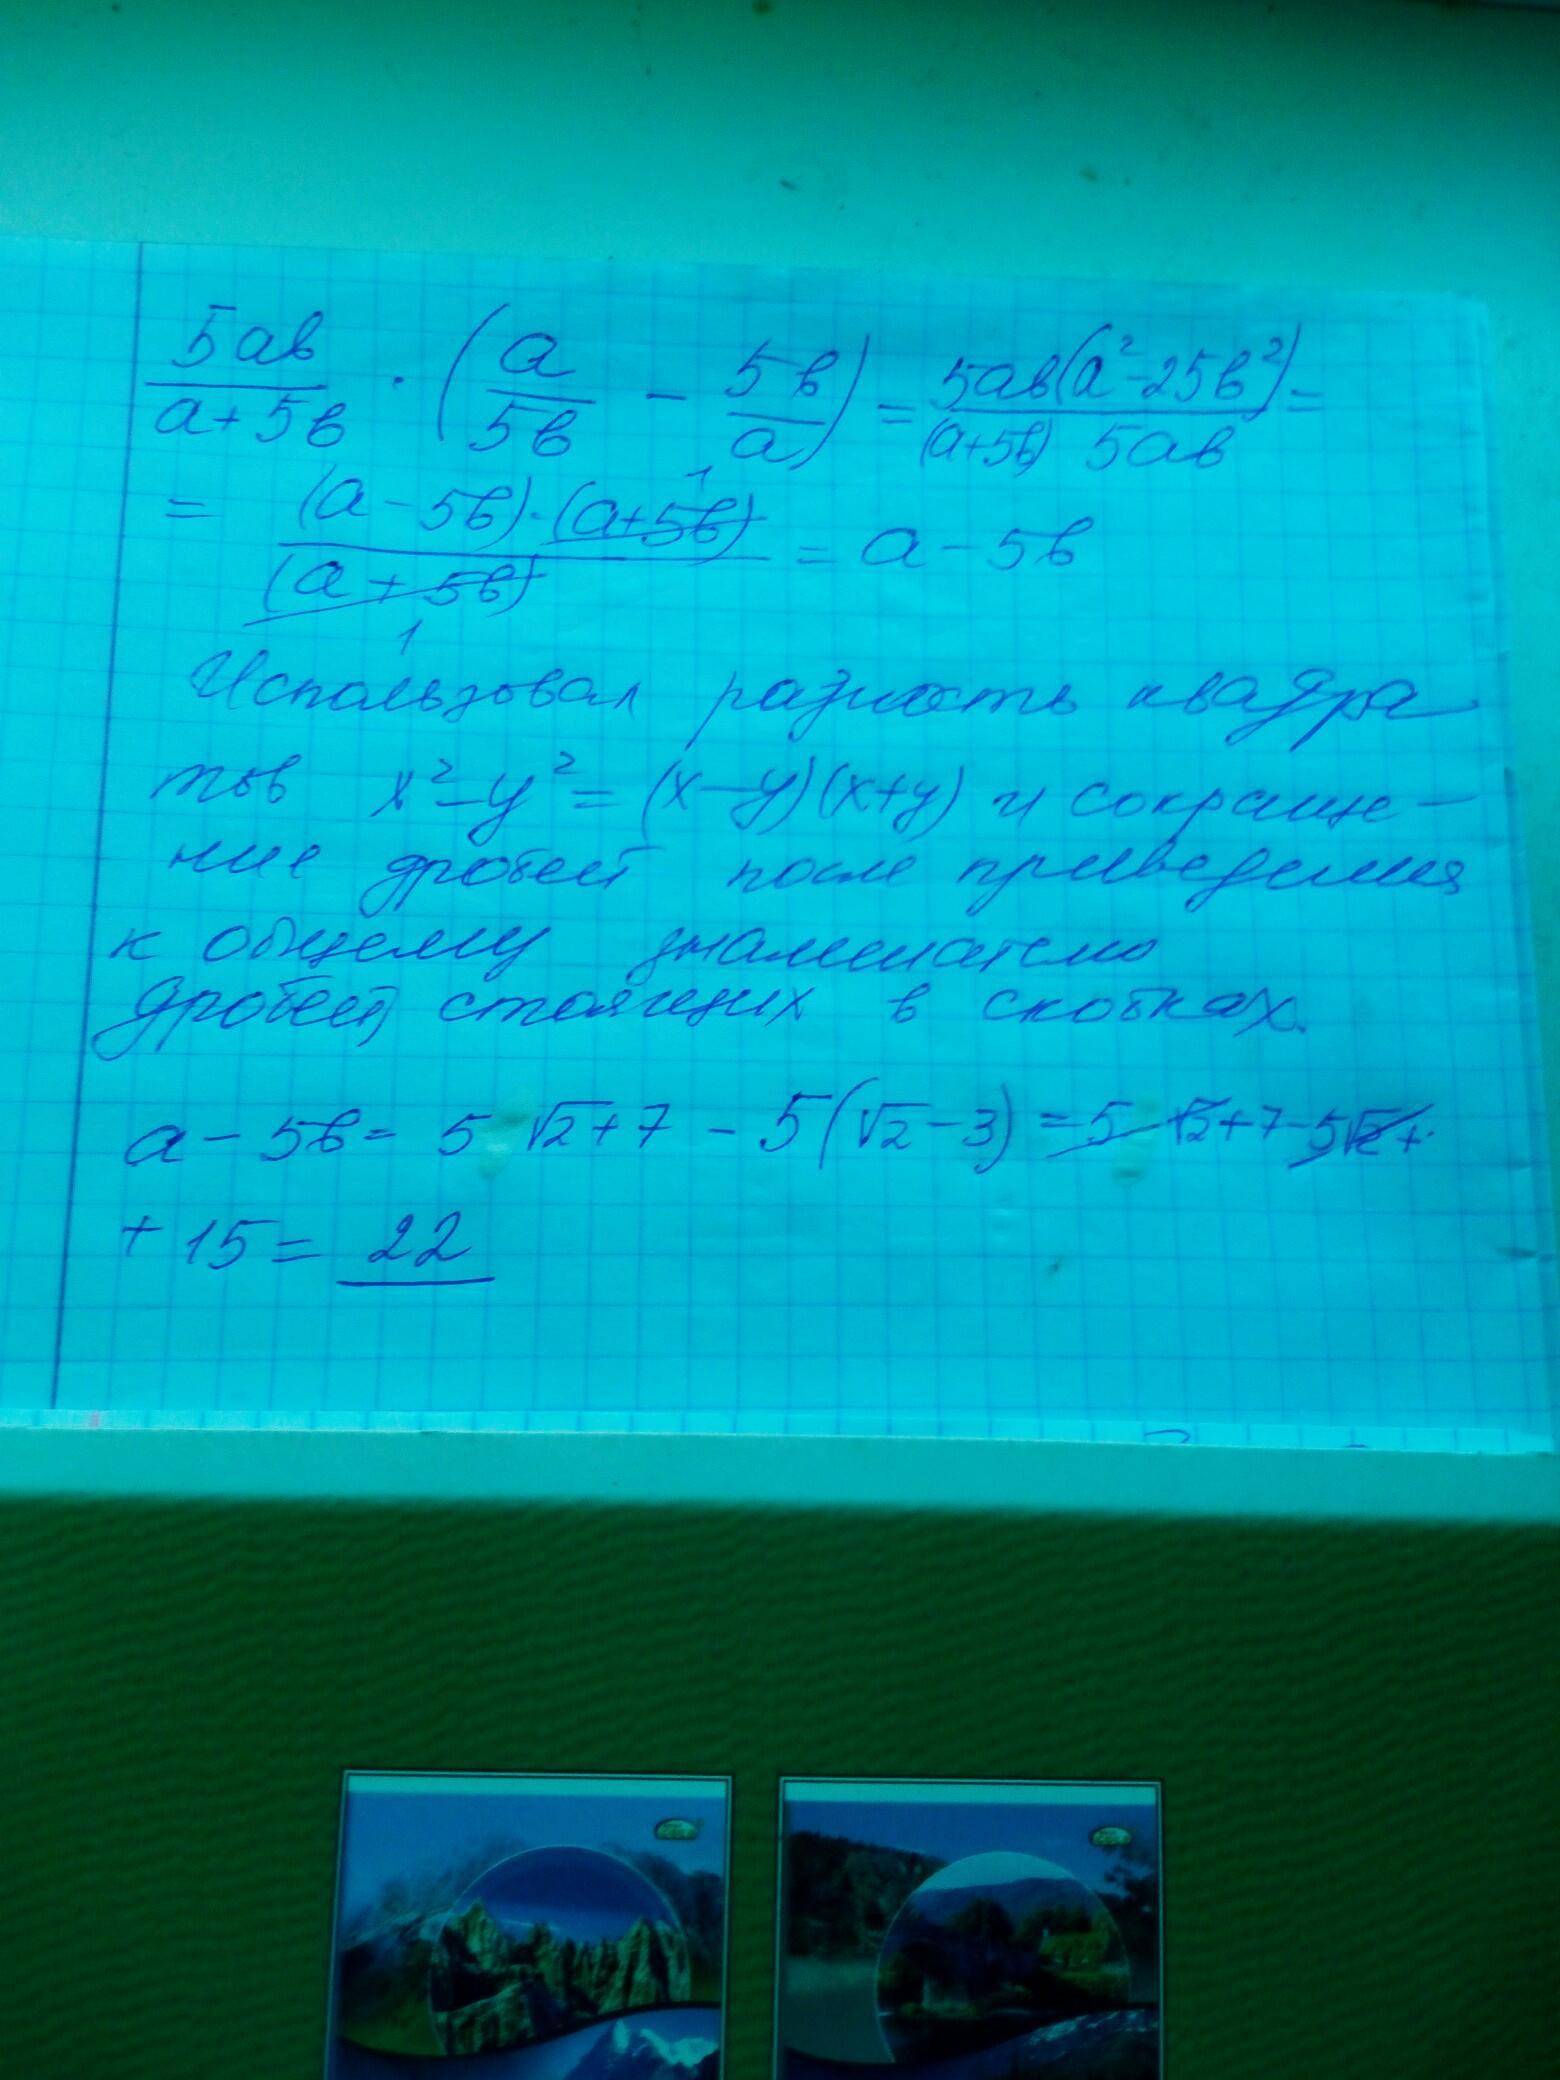 5ав/(а+5в) · (а/5в − 5в/а) = 5ав(а²−25в²)/((а+5в) 5ав) =
= (а−5в)·(а+5в)/(а+5в) = а−5в
1
1
Использовал разность квадра
тов x²−y²=(x−y)(x+y) и сокраще−
ние дробей после приведения
к общему знаменателю
дробей стоящих в скобках.
а−5в= 5 √2+7 − 5(√2−3) = 5 √2+7−5√2+
+15= 22